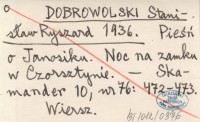 o DOBROWOLSKI Stani-
sław Ryszard 1936. Pieśń
o Janosiku. Noc na zamku
w Czorsztynie. – Ska-
mander 10, nr 76: 472-473.
Wiersz.